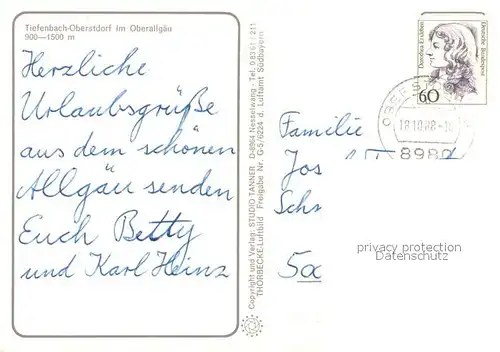 Tiefenbach-Oberstdorf im Oberallgäu
900—1500 m
Herzliche
Urlaubsgrüße
aus dem schönen
Allgäu senden
Euch Betty
und Karl Heinz
Copyright und Verlag: STUDIO TANNER D-8964 Nesselwang - Tel. 08361 / 211
THORBECKE-Luftbild Freigabe Nr. G-5/6224 d. Luftamt Südbayern
Dorothea Erxleben
Deutsche Bundespost
60
18.10.88
898
Familie
Jos
Sch
privacy protection
Datenschutz